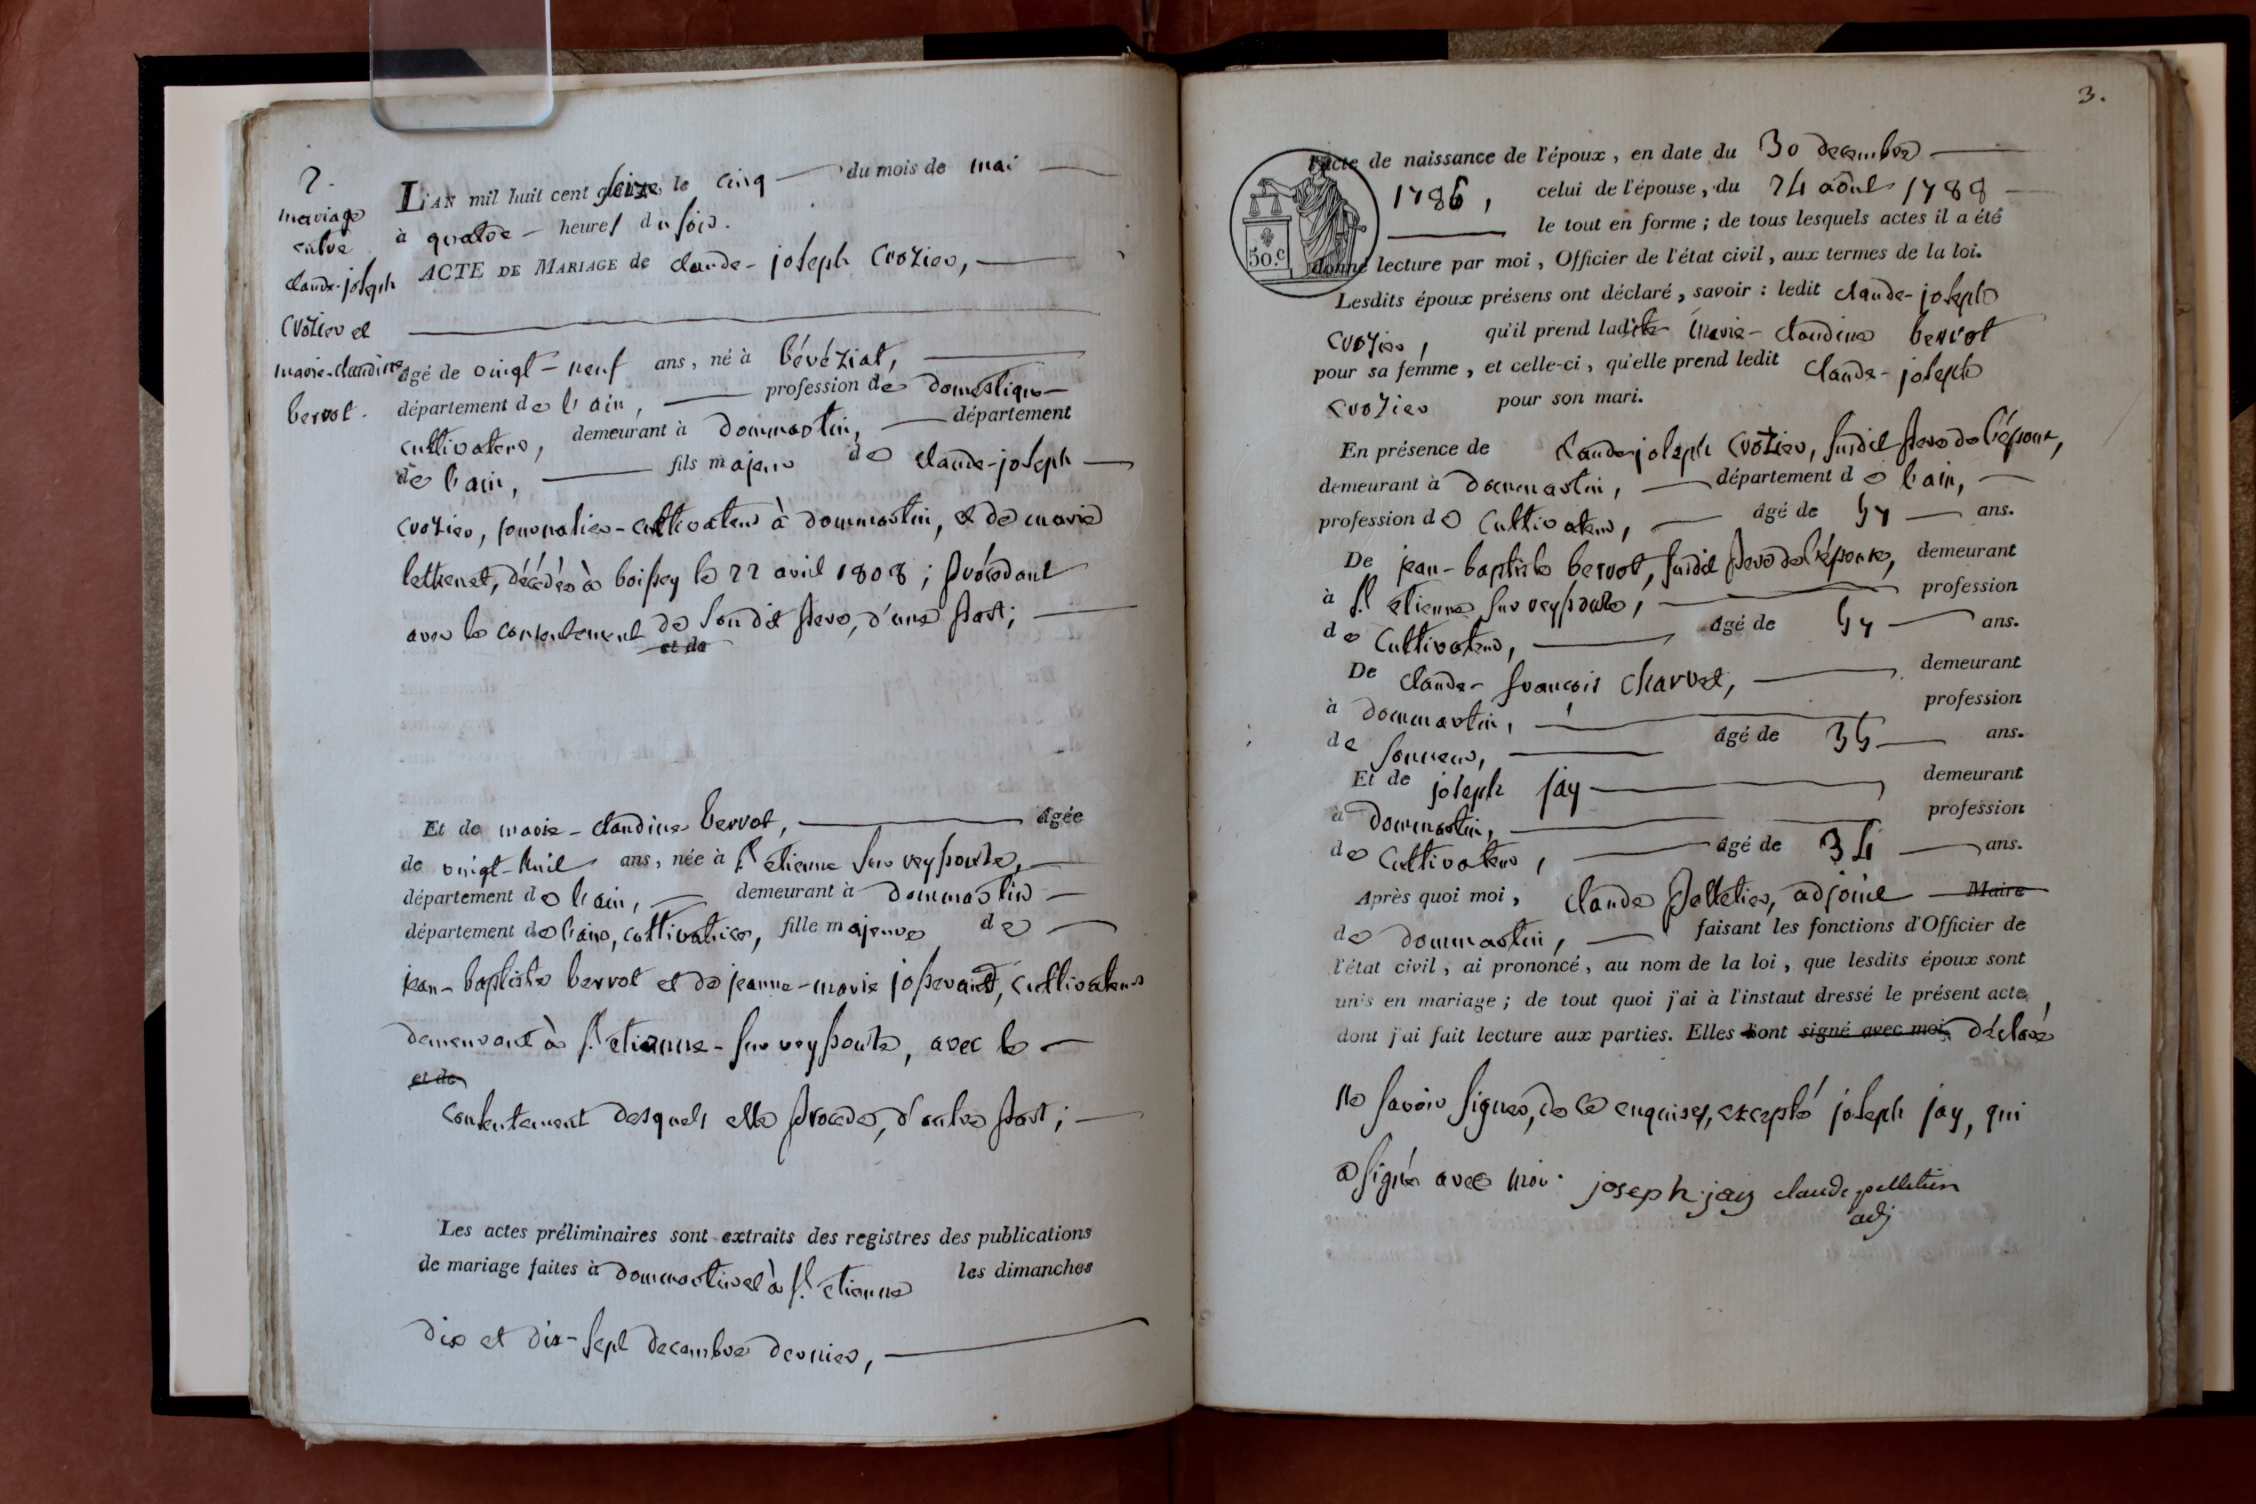 2.
mariage
entre
claude-joseph
Crozier et
marie-claudine
bervot.
L'AN mil huit cent seize le cinq du mois de mai
à quatre heures du soir.
ACTE DE MARIAGE de claude-joseph Crozier,
âgé de vingt-neuf ans, né à béréziat,
département de l'ain, profession de domestique
cultivateur, demeurant à dommartin, département
de l'ain, fils majeur de claude-joseph
crozier, journalier-cultivateur à dommartin, et de marie
décédée à boissey le 22 avril 1808 ; procédant
avec le consentement de son dit pere, d'une part ;
et de
Et de marie-claudine bervot, âgée
de vingt-huit ans, née à st etienne sur reyssouze,
département de l'ain, demeurant à dommartin
département de l'ain, cultivatrice, fille majeure de
jean-baptiste bervot et de jeanne-marie josserand, cultivateurs
demeurant à st etienne-sur reyssouze, avec le
et de
consentement desquels elle procede, d'autre part ;
Les actes préliminaires sont extraits des registres des publications
de mariage faites à dommartin et à st etienne les dimanches
dix et dix-sept decembre dernier,
3.
50.c
l'acte de naissance de l'époux, en date du 30 decembre
1786, celui de l'épouse, du 24 août 1788
le tout en forme ; de tous lesquels actes il a été
donné lecture par moi, Officier de l'état civil, aux termes de la loi.
Lesdits époux présens ont déclaré, savoir : ledit claude-joseph
crozier, qu'il prend ladite marie-claudine bervot
pour sa femme, et celle-ci, qu'elle prend ledit claude-joseph
crozier pour son mari.
En présence de claude joseph crozier, susdit pere de l'époux,
demeurant à dommartin, département de l'ain,
profession de cultivateur, âgé de 57 ans.
De jean-baptiste bervot, susdit pere de l'épouse, demeurant
à st etienne sur reyssouze, profession
de cultivateur, âgé de 57 ans.
De claude-françois charvet, demeurant
à dommartin, profession
de sonneur, âgé de 35 ans.
Et de joseph jay demeurant
à dommartin, profession
de cultivateur, âgé de 34 ans.
Après quoi moi, claude pelletier, adjoint Maire
de dommartin, faisant les fonctions d'Officier de
l'état civil, ai prononcé, au nom de la loi, que lesdits époux sont
unis en mariage ; de tout quoi j'ai à l'instant dressé le présent acte,
dont j'ai fait lecture aux parties. Elles ont signé avec moi, déclaré
ne savoir signer, de ce enquises, excepté joseph jay, qui
a signé avec moi. joseph jay claude pelletier
adj